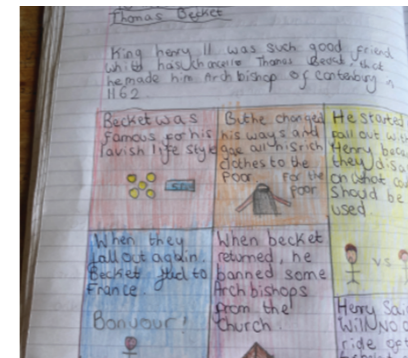 Thomas Becket
King henry II was such good friend
whith has chancellor Thomas Becket, that
he made him Archbishop of Cantenbury in
1162
Becket was
famous for his
lavish life style
But he changed
his ways and
gae all his rich
clothes to the
poor
for the
poor
He started
fall out with
Henry beca
they disa
on what cou
Shoud be
used
VS
When they
fall out again.
Becket fled to
France.
Bonjour!
When becket
returned, he
banned some
Archbishops
from the
church.
Henry Sai
Will NO o
ride of